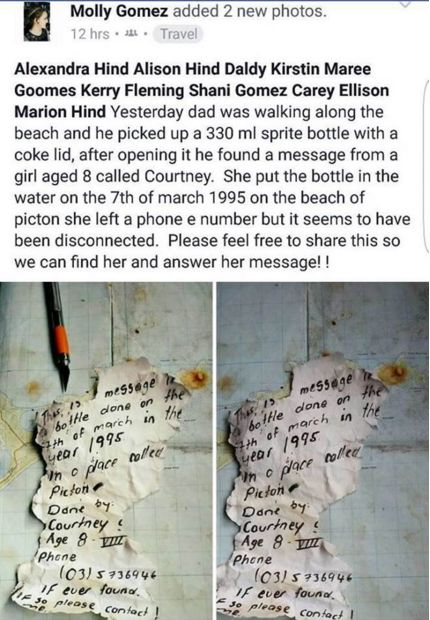 Molly Gomez added 2 new photos.
12 hrs · Travel
Alexandra Hind Alison Hind Daldy Kirstin Maree
Goomes Kerry Fleming Shani Gomez Carey Ellison
Marion Hind Yesterday dad was walking along the
beach and he picked up a 330 ml sprite bottle with a
coke lid, after opening it he found a message from a
girl aged 8 called Courtney. She put the bottle in the
water on the 7th of march 1995 on the beach of
picton she left a phone e number but it seems to have
been disconnected. Please feel free to share this so
we can find her and answer her message! !
This is message in
a bottle done on the
7th of march in the
year 1995
in a place called
Picton
Done by:
Courtney
Age 8 - VIII
Phone
(03) 5736946
IF ever found.
IF so please contact !
me
This is message in
a bottle done on the
7th of march in the
year 1995
in a place called
Picton
Done by:
Courtney
Age 8 - VIII
Phone
(03) 5736946
IF ever found.
IF so please contact !
me